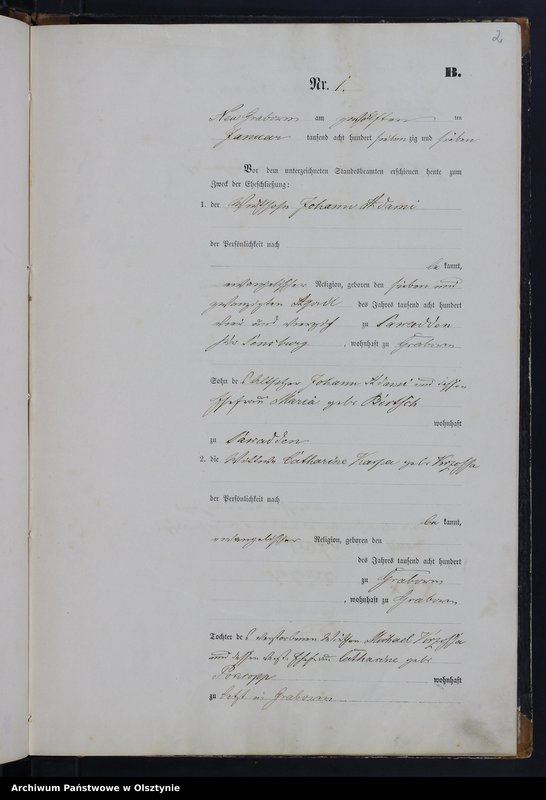 2
B.
Nr. 1.
Neu Grabowen am zwölften ten
Januar tausend acht hundert siebenzig und sieben
Vor dem unterzeichneten Standesbeamten erschienen heute zum
Zweck der Eheschließung:
1. der Johann Adami
der Persönlichkeit nach
be kannt,
evangelischer Religion, geboren den sieben und
zwanzigsten April des Jahres tausend acht hundert
vier und vierzig zu Sawadden
Sensburg, wohnhaft zu Grabowen
Sohn des Johann Adami und dessen
Ehefrau Maria geb. Bertsch
wohnhaft
zu Sawadden
2. die Wittwe Catharine geb.
der Persönlichkeit nach
be kannt,
evangelischer Religion, geboren den
des Jahres tausend acht hundert
zu Grabowen
, wohnhaft zu Grabowen
Tochter des verstorbenen Michael
und dessen verst. Ehefrau Catharine geb.
wohnhaft
zu in Grabowen
Archiwum Państwowe w Olsztynie